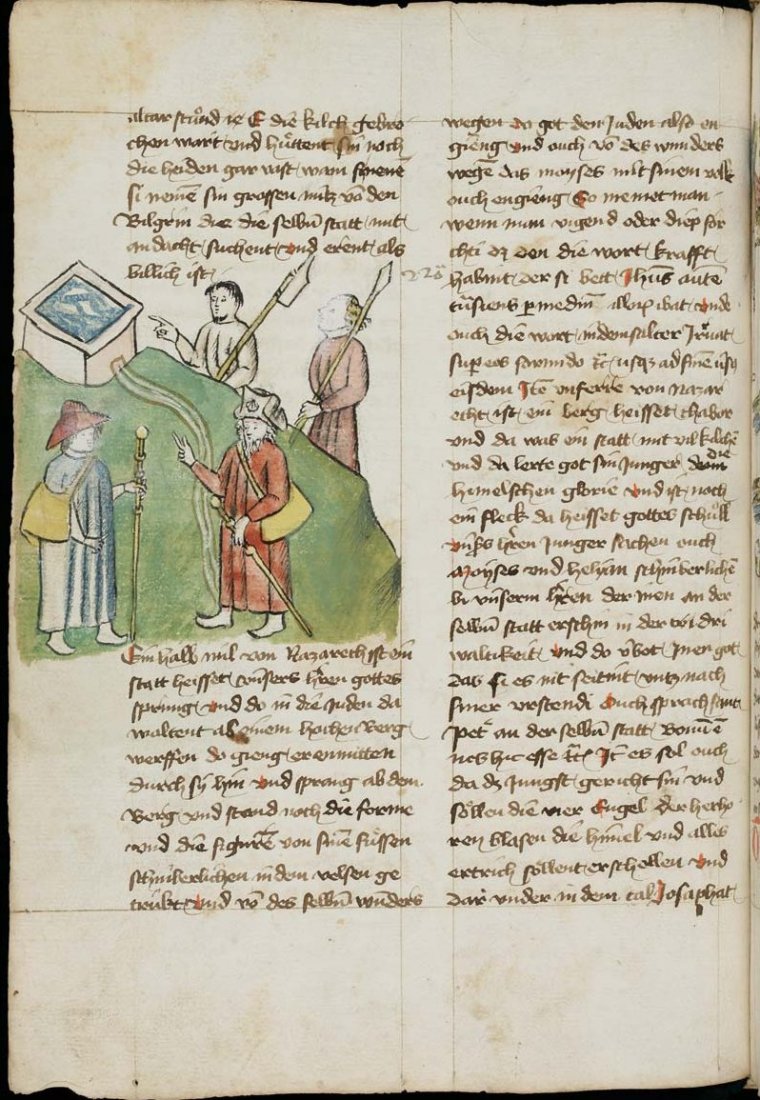 altar stůnd ie E die kilch gebro
chen wart vnd hůttent sin noch
die heiden gar vast wann
si nemē sin grossen nutz vō den
Bilgrin die die selbn̄ statt mit
andacht suchent vnd erent als
billich ist
Ein halb mil von Nazareth ist ein
statt heisset vnsers hr̄en gottes
sprung vnd do in die Juden da
woltent ab einem hochen Berg
werffen do gieng er enmitten
durch sÿ hin vnd sprang ab dem
Berg vnd stand noch die forme
vnd die figure von sinē fůssen
schinberlichen in dem velsen ge
truktt vnd vō des selbn̄ wunders
wegen do got den Juden also en
gieng vnd ouch vō des wunders
wegē das moyses mit sinem volk
ouch engieng So meinet man
wenn man vigend oder diep för
chti dz den die wort krafft
habint der si bett Jhūs autē
transiens p mediū illoꝝ ibat vnde
ouch die wort in dem salter Jrruat
sup eos formido ꝛc usqz ad finē
eiusdem Itē vnferre von Nazar
etht ist ein berg heisset thabor
vnd da was ein statt mit vil kilchē
vnd da lerte got sin Junger die
himelschen glorie vnd ist noch
ein fleck da heisset gottes schůll
vnsers hr̄en Junger sachen ouch
Moyses vnd helyam schinberlichē
bi vnserm hr̄en der inen an der
selbn̄ statt erschin in der tri dri
valtikeit vnd do v̓bot Jnen got
das si es nit seitint vntz nach
siner vrstendi Ouch sprach sant
Pet̓ an der selbn̄ statt Bonum̄ ē
nos hic esse ꝛc Itē es sol ouch
da dz Jungst gericht sin vnd
söllen die vier Engel der herho
ren blasen die himel vnd alles
ertrich söllent erschellen vnd
dar vnder in dem tal Josaphat